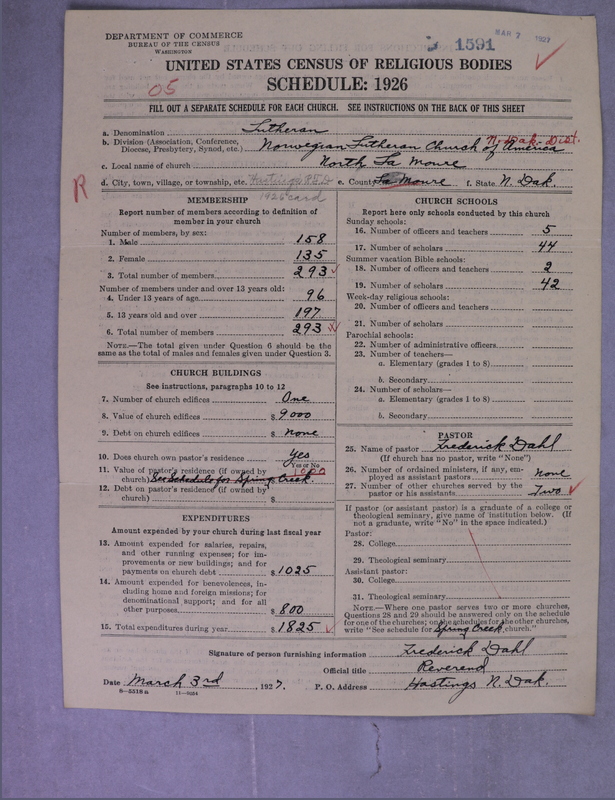 DEPARTMENT OF COMMERCE
BUREAU OF THE CENSUS
WASHINGTON
3 1591
MAR 7 1927
UNITED STATES CENSUS OF RELIGIOUS BODIES
SCHEDULE: 1926
05
FILL OUT A SEPARATE SCHEDULE FOR EACH CHURCH. SEE INSTRUCTIONS ON THE BACK OF THIS SHEET
a. Denomination Lutheran
b. Division (Association, Conference, Diocese, Presbytery, Synod, etc.) Norwegian Lutheran Church of America N. Dak. Dist.
c. Local name of church North La Moure
d. City, town, village, or township, etc. Hastings R.F.D. e. County La Moure f. State N. Dak.
1926 card
R
MEMBERSHIP
Report number of members according to definition of member in your church
Number of members, by sex:
1. Male 158
2. Female 135
3. Total number of members 293
Number of members under and over 13 years old:
4. Under 13 years of age 96
5. 13 years old and over 197
6. Total number of members 293
NOTE.—The total given under Question 6 should be the same as the total of males and females given under Question 3.
CHURCH BUILDINGS
See instructions, paragraphs 10 to 12
7. Number of church edifices One
8. Value of church edifices $ 9000
9. Debt on church edifices $ None
10. Does church own pastor's residence? Yes
Yes or No
11. Value of pastor's residence (if owned by church) See Schedule for Spring Creek.
12. Debt on pastor's residence (if owned by church) $
EXPENDITURES
Amount expended by your church during last fiscal year
13. Amount expended for salaries, repairs, and other running expenses; for improvements or new buildings; and for payments on church debt $ 1025
14. Amount expended for benevolences, including home and foreign missions; for denominational support; and for all other purposes $ 800
15. Total expenditures during year $ 1825
CHURCH SCHOOLS
Report here only schools conducted by this church
Sunday schools:
16. Number of officers and teachers 5
17. Number of scholars 44
Summer vacation Bible schools:
18. Number of officers and teachers 2
19. Number of scholars 42
Week-day religious schools:
20. Number of officers and teachers
21. Number of scholars
Parochial schools:
22. Number of administrative officers
23. Number of teachers—
a. Elementary (grades 1 to 8)
b. Secondary
24. Number of scholars—
a. Elementary (grades 1 to 8)
b. Secondary
PASTOR
25. Name of pastor Frederick Dahl
(If church has no pastor, write "None")
26. Number of ordained ministers, if any, employed as assistant pastors None
27. Number of other churches served by the pastor or his assistants Two
If pastor (or assistant pastor) is a graduate of a college or theological seminary, give name of institution below. (If not a graduate, write "No" in the space indicated.)
Pastor:
28. College
29. Theological seminary
Assistant pastor:
30. College
31. Theological seminary
NOTE.—Where one pastor serves two or more churches, Questions 28 and 29 should be answered only on the schedule for one of the churches; on the schedules for the other churches, write "See schedule for Spring Creek church."
Signature of person furnishing information Frederick Dahl
Official title Reverend
Date March 3rd, 1927. P. O. Address Hastings N. Dak.
8—5518a 11—9384